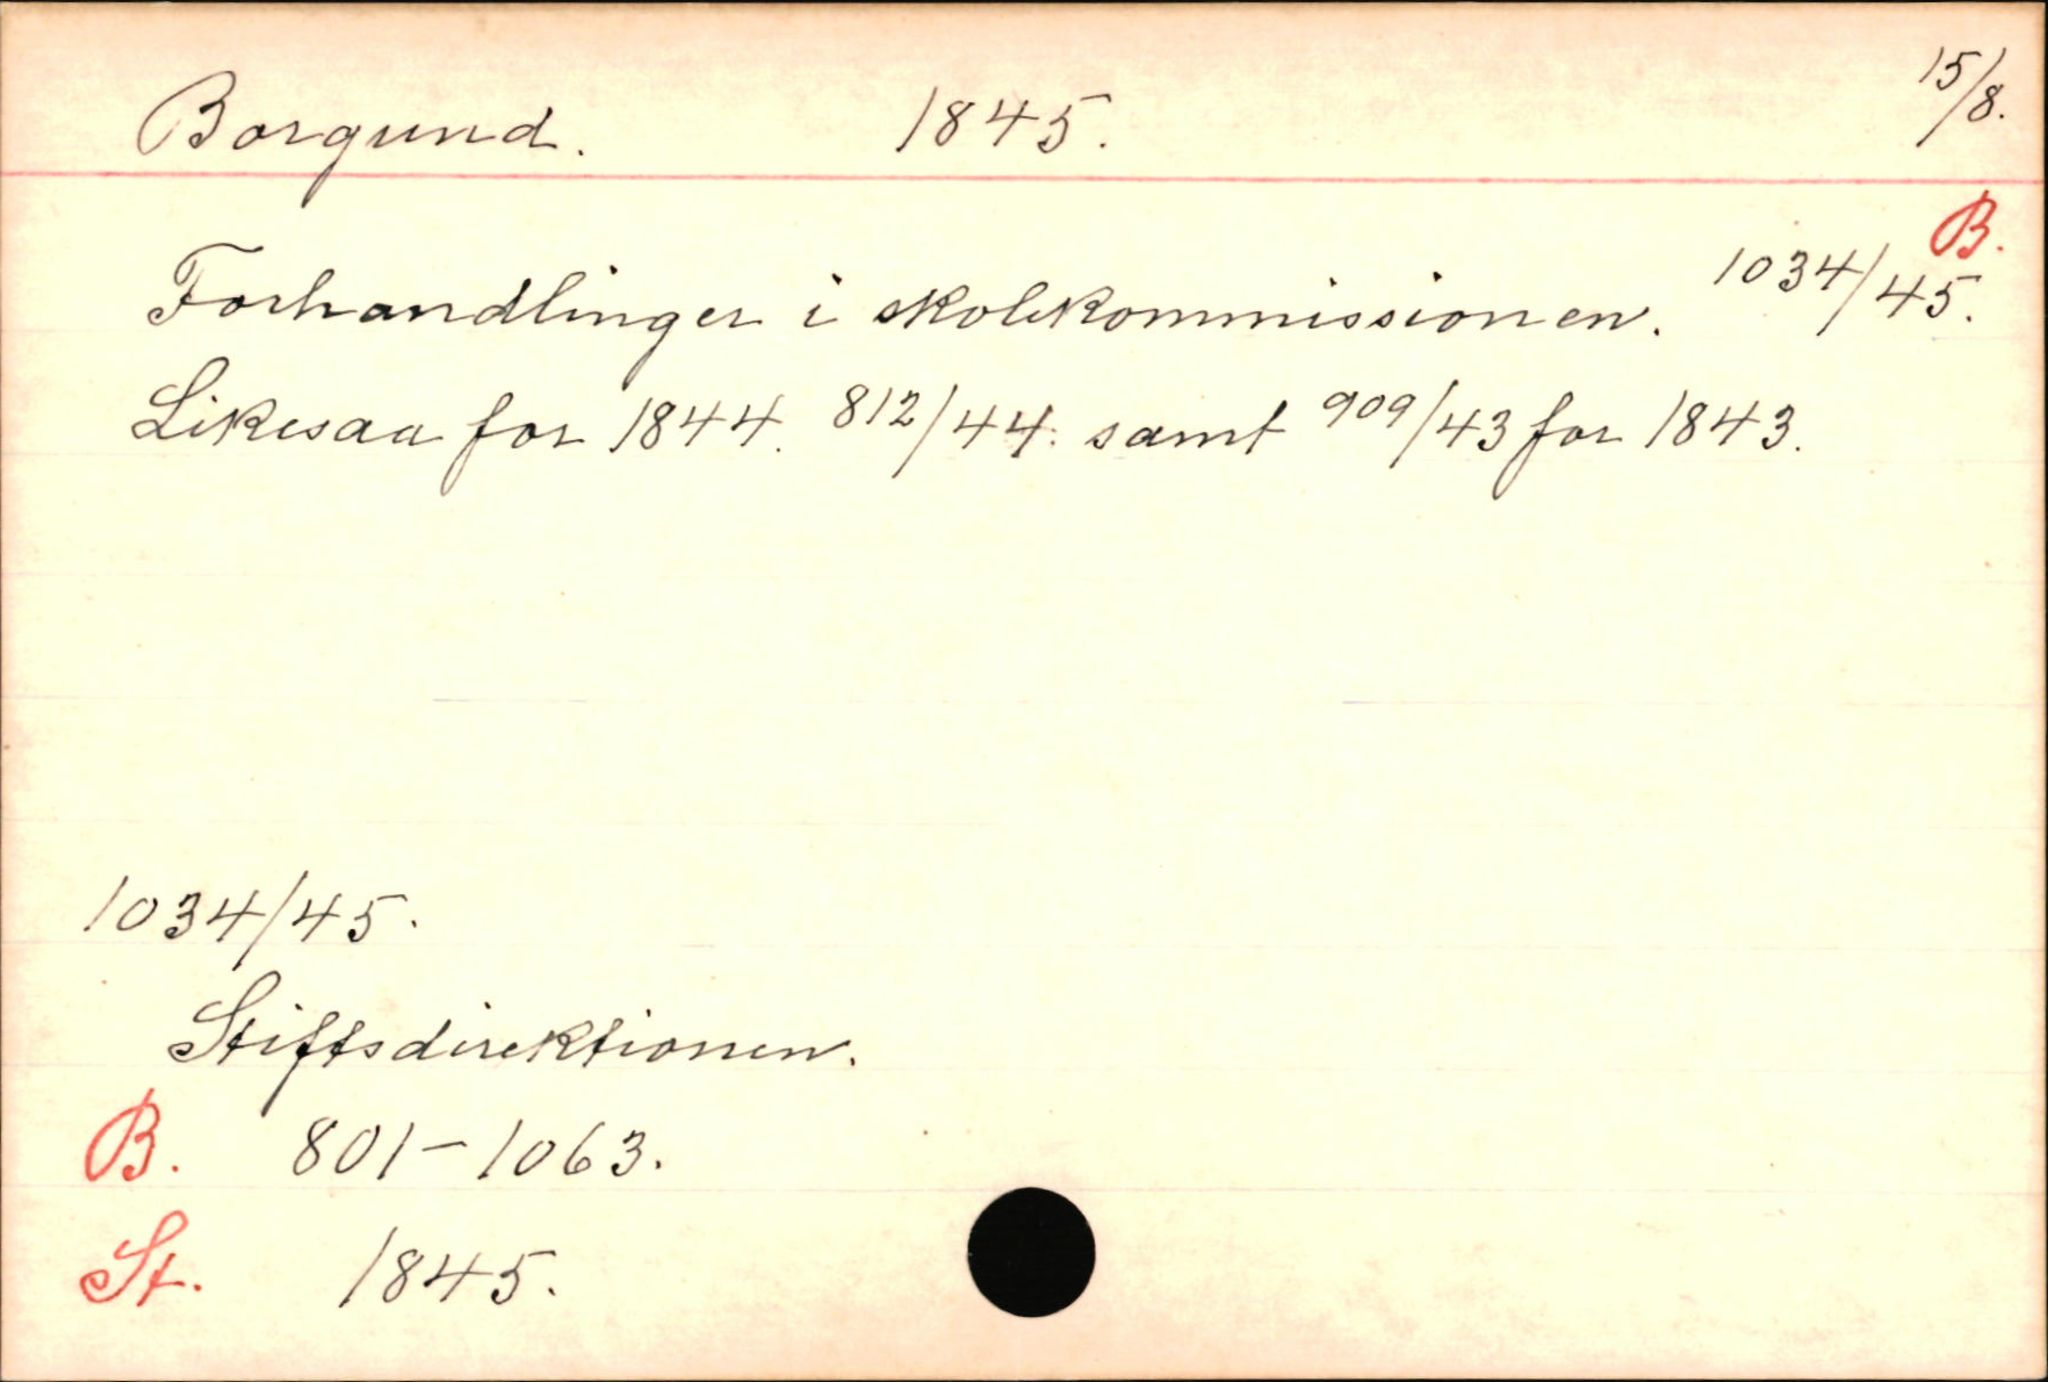 Borgund. 1845. 15/8.
B.
Forhandlinger i skolekommissionen. 1034/45.
Likesaa for 1844. 812/44. samt 909/43 for 1843.
1034/45.
Stiftsdirektionen.
B. 801-1063.
St. 1845.